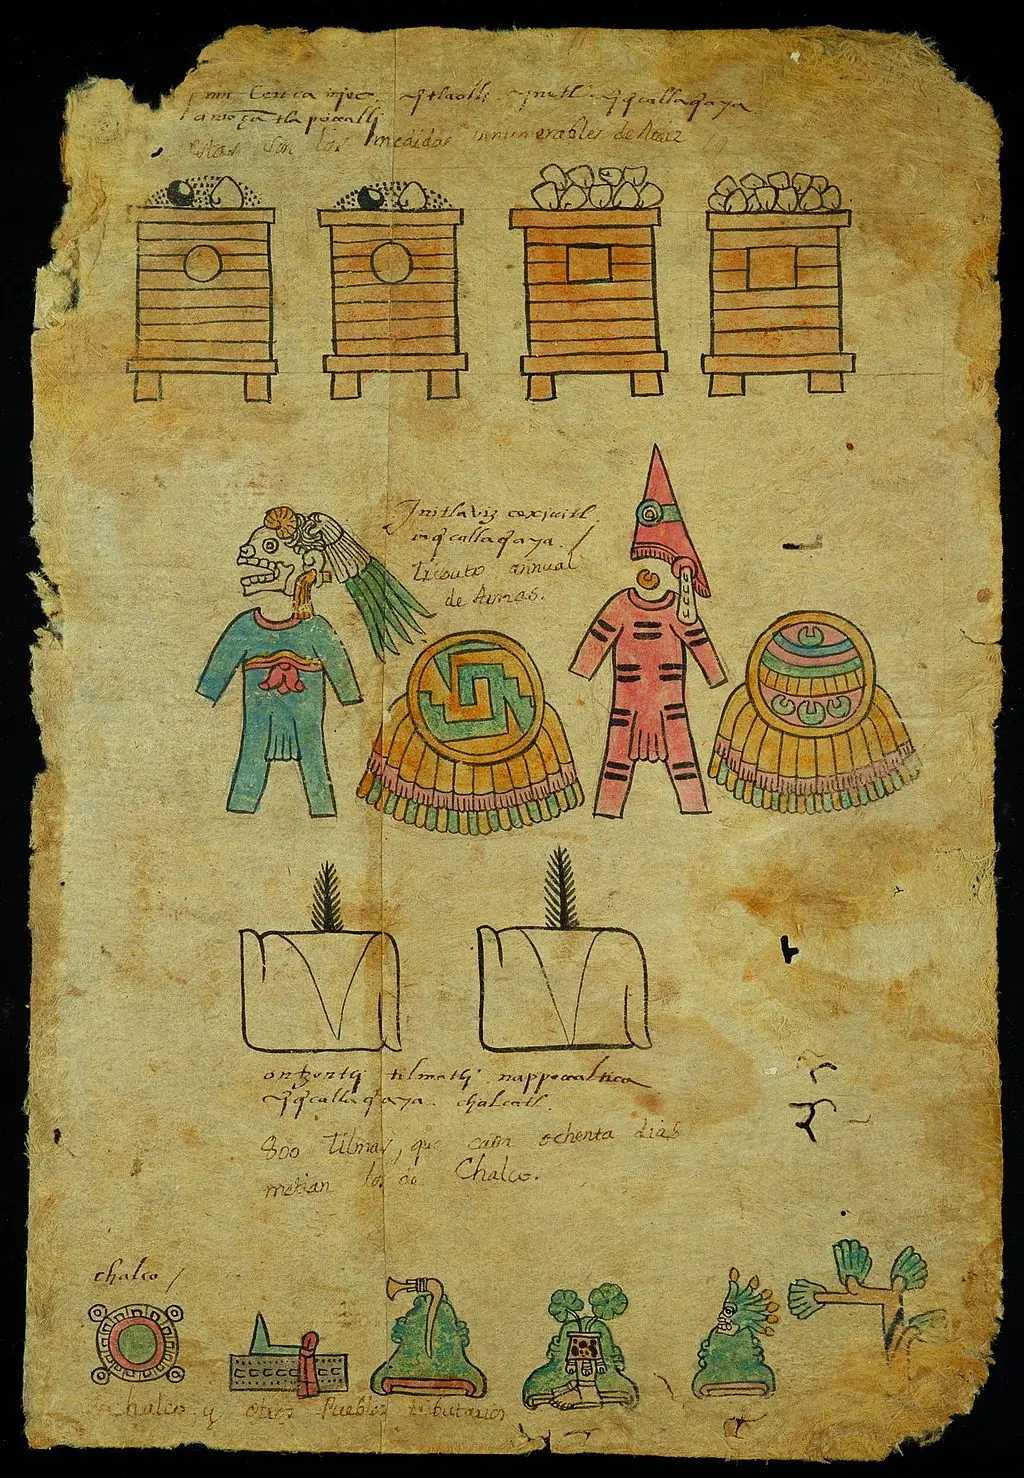 cenca miec
estas son las medidas innumerables de Maiz
Initlaviz cexiuitl
inqcallaqaya.
Tributo annual
de Armas.
ontzontli tilmatli nappoaltica
qcallaqaya. chalcatl.
800 Tilmas, que cada ochenta dias
metian los de Chalco.
chalco /
chalco y otros Pueblos tributarios